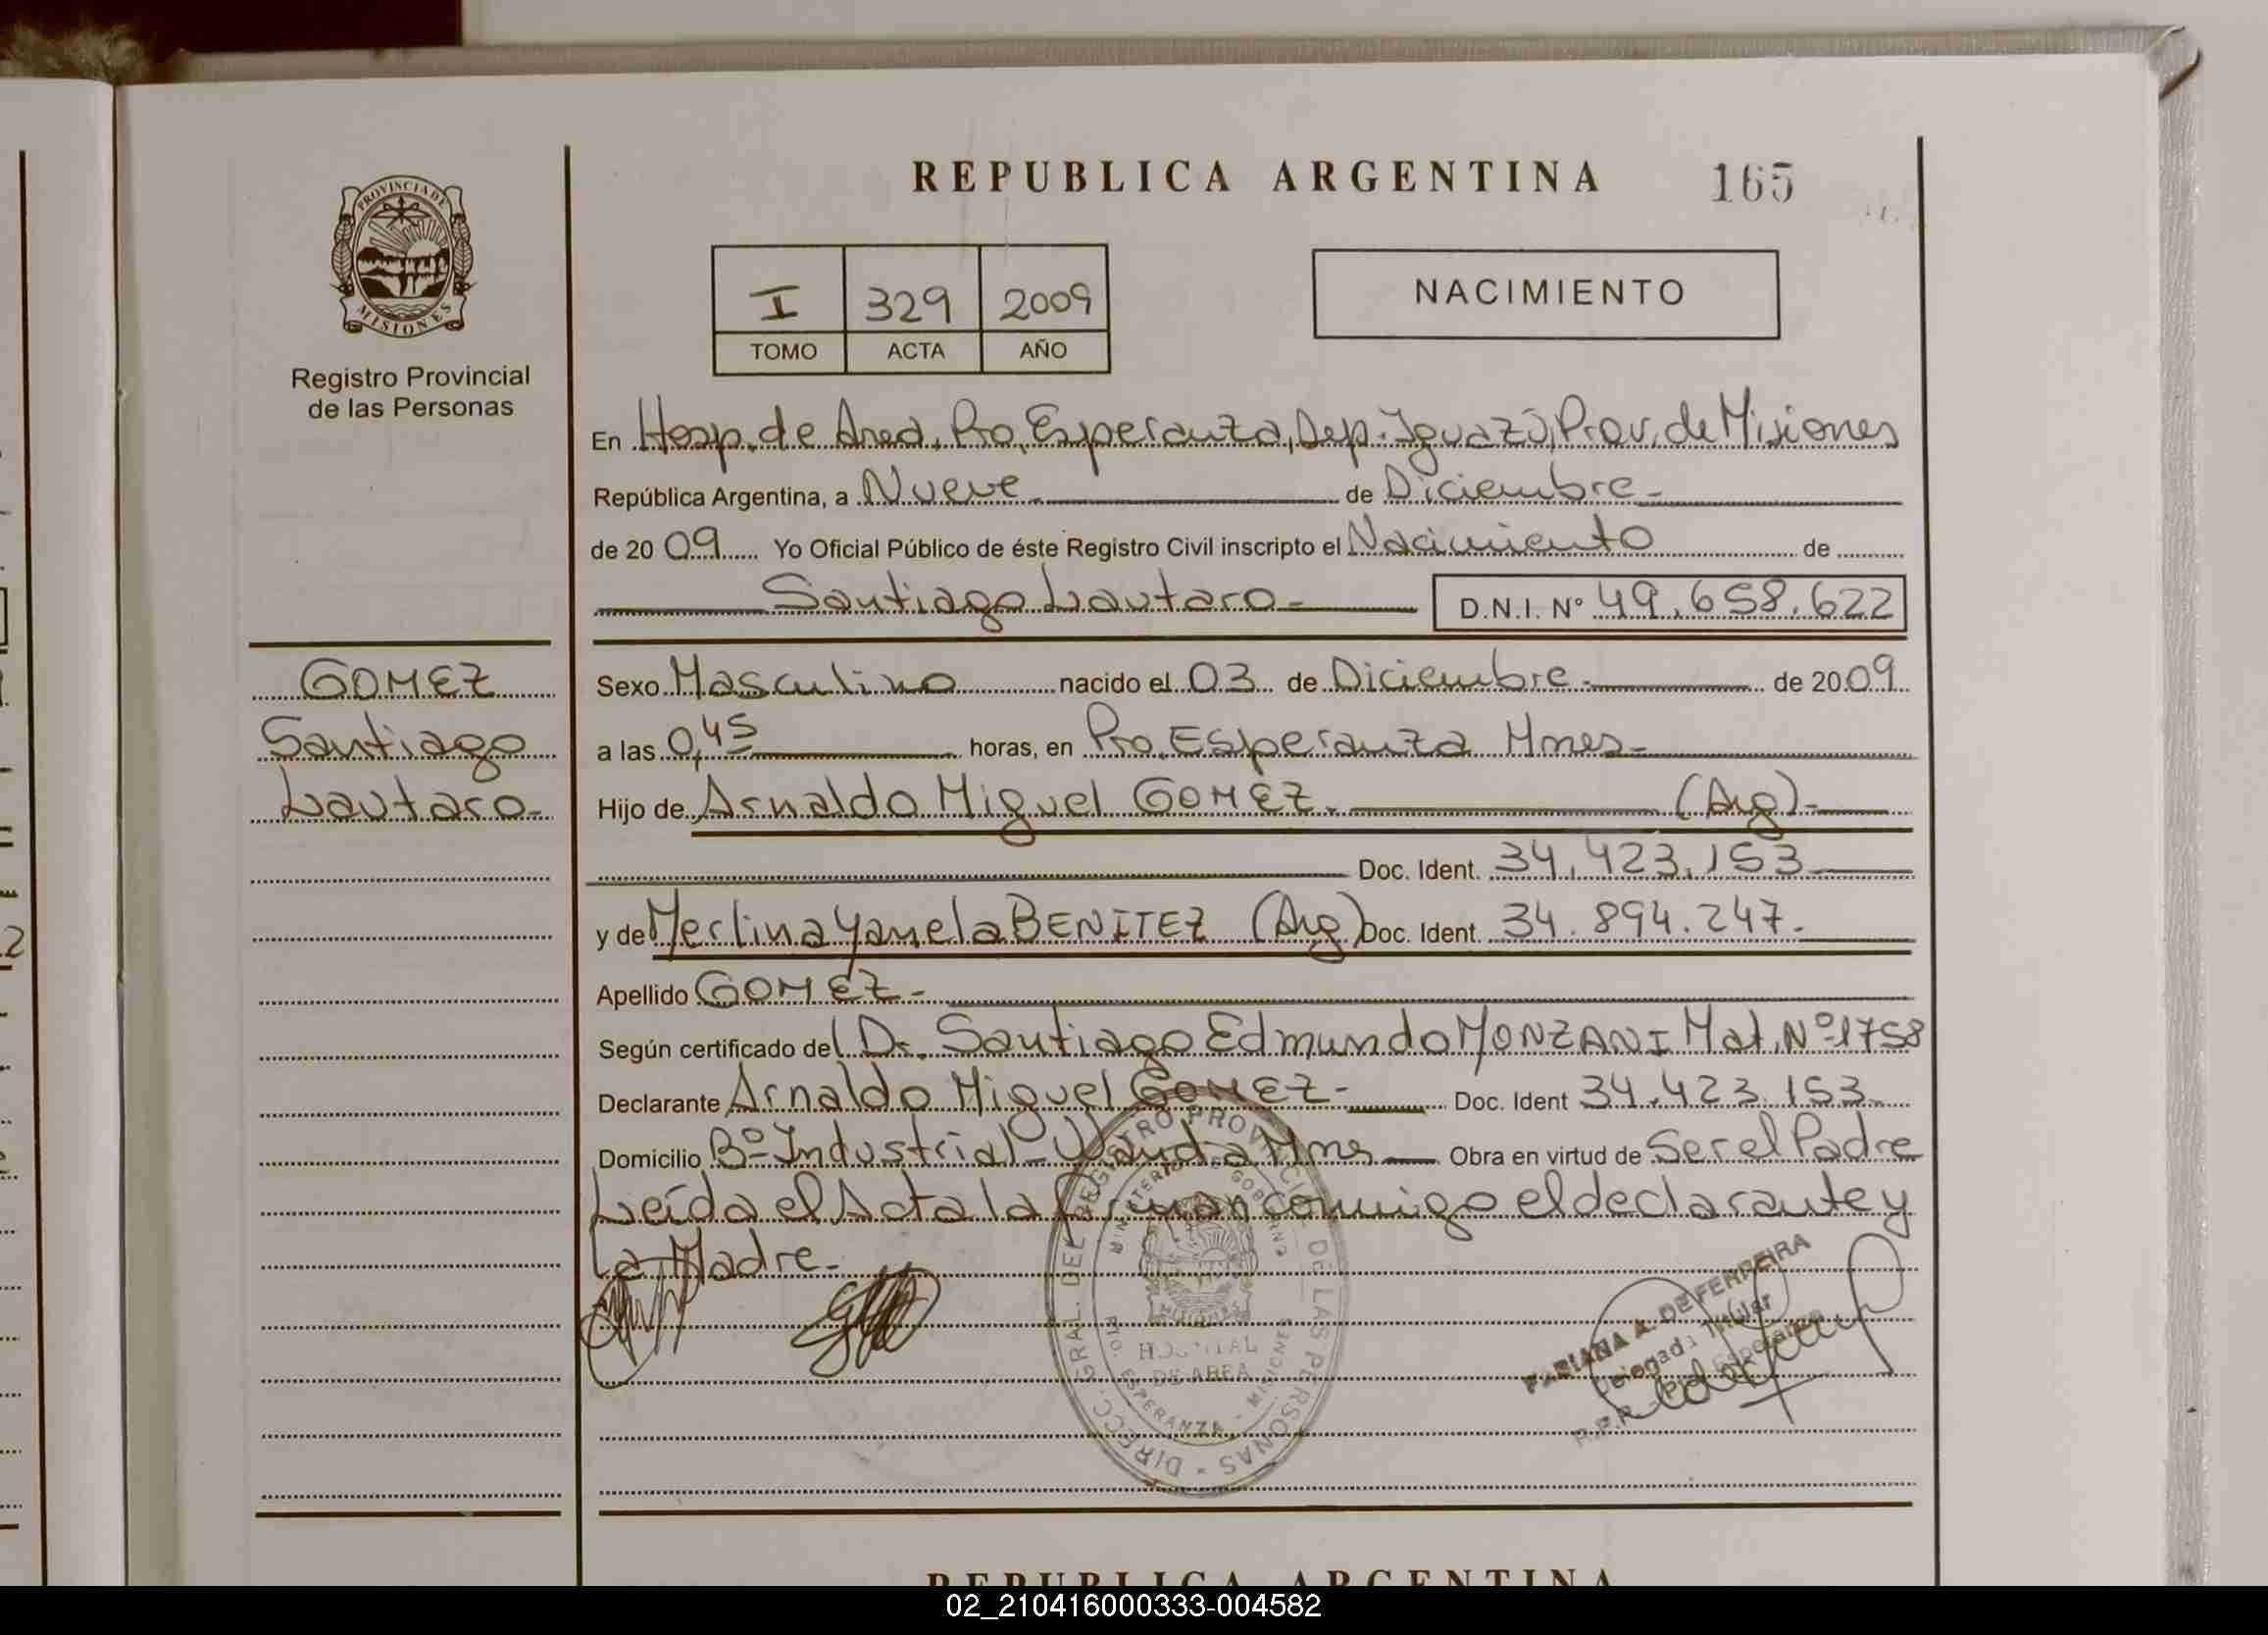 REPUBLICA ARGENTINA 165
PROVINCIA DE
MISIONES
Registro Provincial
de las Personas
I 329 2009
TOMO ACTA AÑO
NACIMIENTO
En Hosp. de Area, Pto. Esperanza, Dep. Iguazú, Prov. de Misiones
República Argentina, a Nueve. de Diciembre-
de 20 09 Yo Oficial Público de éste Registro Civil inscripto el Nacimiento de
Santiago Lautaro- D.N.I. N° 49.658.622
GOMEZ
Santiago
Lautaro-
Sexo Masculino nacido el 03 de Diciembre- de 2009
a las 0,45 horas, en Pto. Esperanza Mnes-
Hijo de Arnaldo Miguel GOMEZ. (Arg)-
Doc. Ident. 34.423.153
y de Merlina Yamela BENITEZ (Arg) Doc. Ident. 34.894.247.
Apellido GOMEZ-
Según certificado del Dr. Santiago Edmundo MONZANI Mat. Nº1758
Declarante Arnaldo Miguel GOMEZ- Doc. Ident 34.423.153
Domicilio Bº Industrial- Wanda Mnes Obra en virtud de Ser el Padre
Leída el Acta la firman conmigo el declarante y
la Madre.
DIRECC. GRAL. DEL REGISTRO PROVINCIAL DE LAS PERSONAS -
MINISTERIO DE GOBIERNO
HOSPITAL
DE AREA
PTO. ESPERANZA - MISIONES
FABIANA A. DE FERREIRA
Delegada Titular
R.P.P. - Pto. Esperanza
REPUBLICA ARGENTINA
02_210416000333-004582